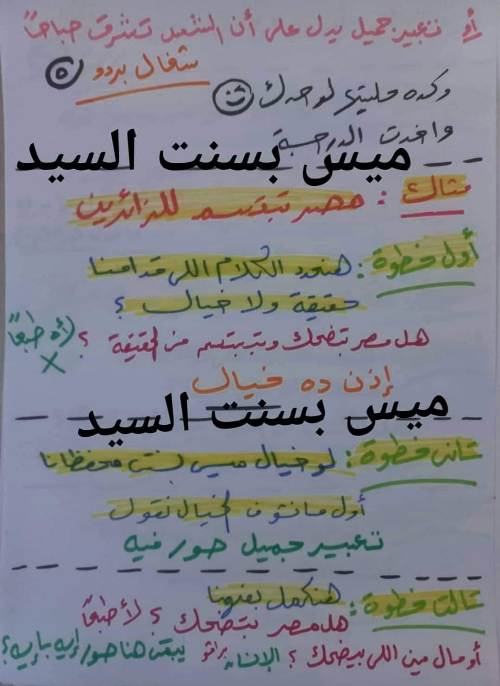 أو تعبير جميل يدل على أن الشمس تشرق صباحًا
شغال بردو
وكده حليتي لوحدك
واخدت الدرجة
ميس بسنت السيد
مثال : مصر تبتسم للزائرين
أول خطوة : هنحدد الكلام اللى قدامنا
حقيقة ولا خيال ؟
هل مصر بتضحك وبتبتسم في الحقيقة ؟ لأ طبعًا
إذن ده خيال
ميس بسنت السيد
تانى خطوة : لو خيال ميس بسنت محفظانا
أول مانشوف الخيال نقول
تعبير جميل صور فيه
تالت خطوة : هنكمل بقى
هل مصر بتضحك ؟ لأ طبعًا
أومال مين اللى بيضحك ؟ الإنسان برافو يبقى هنا صور إيه بإيه ؟